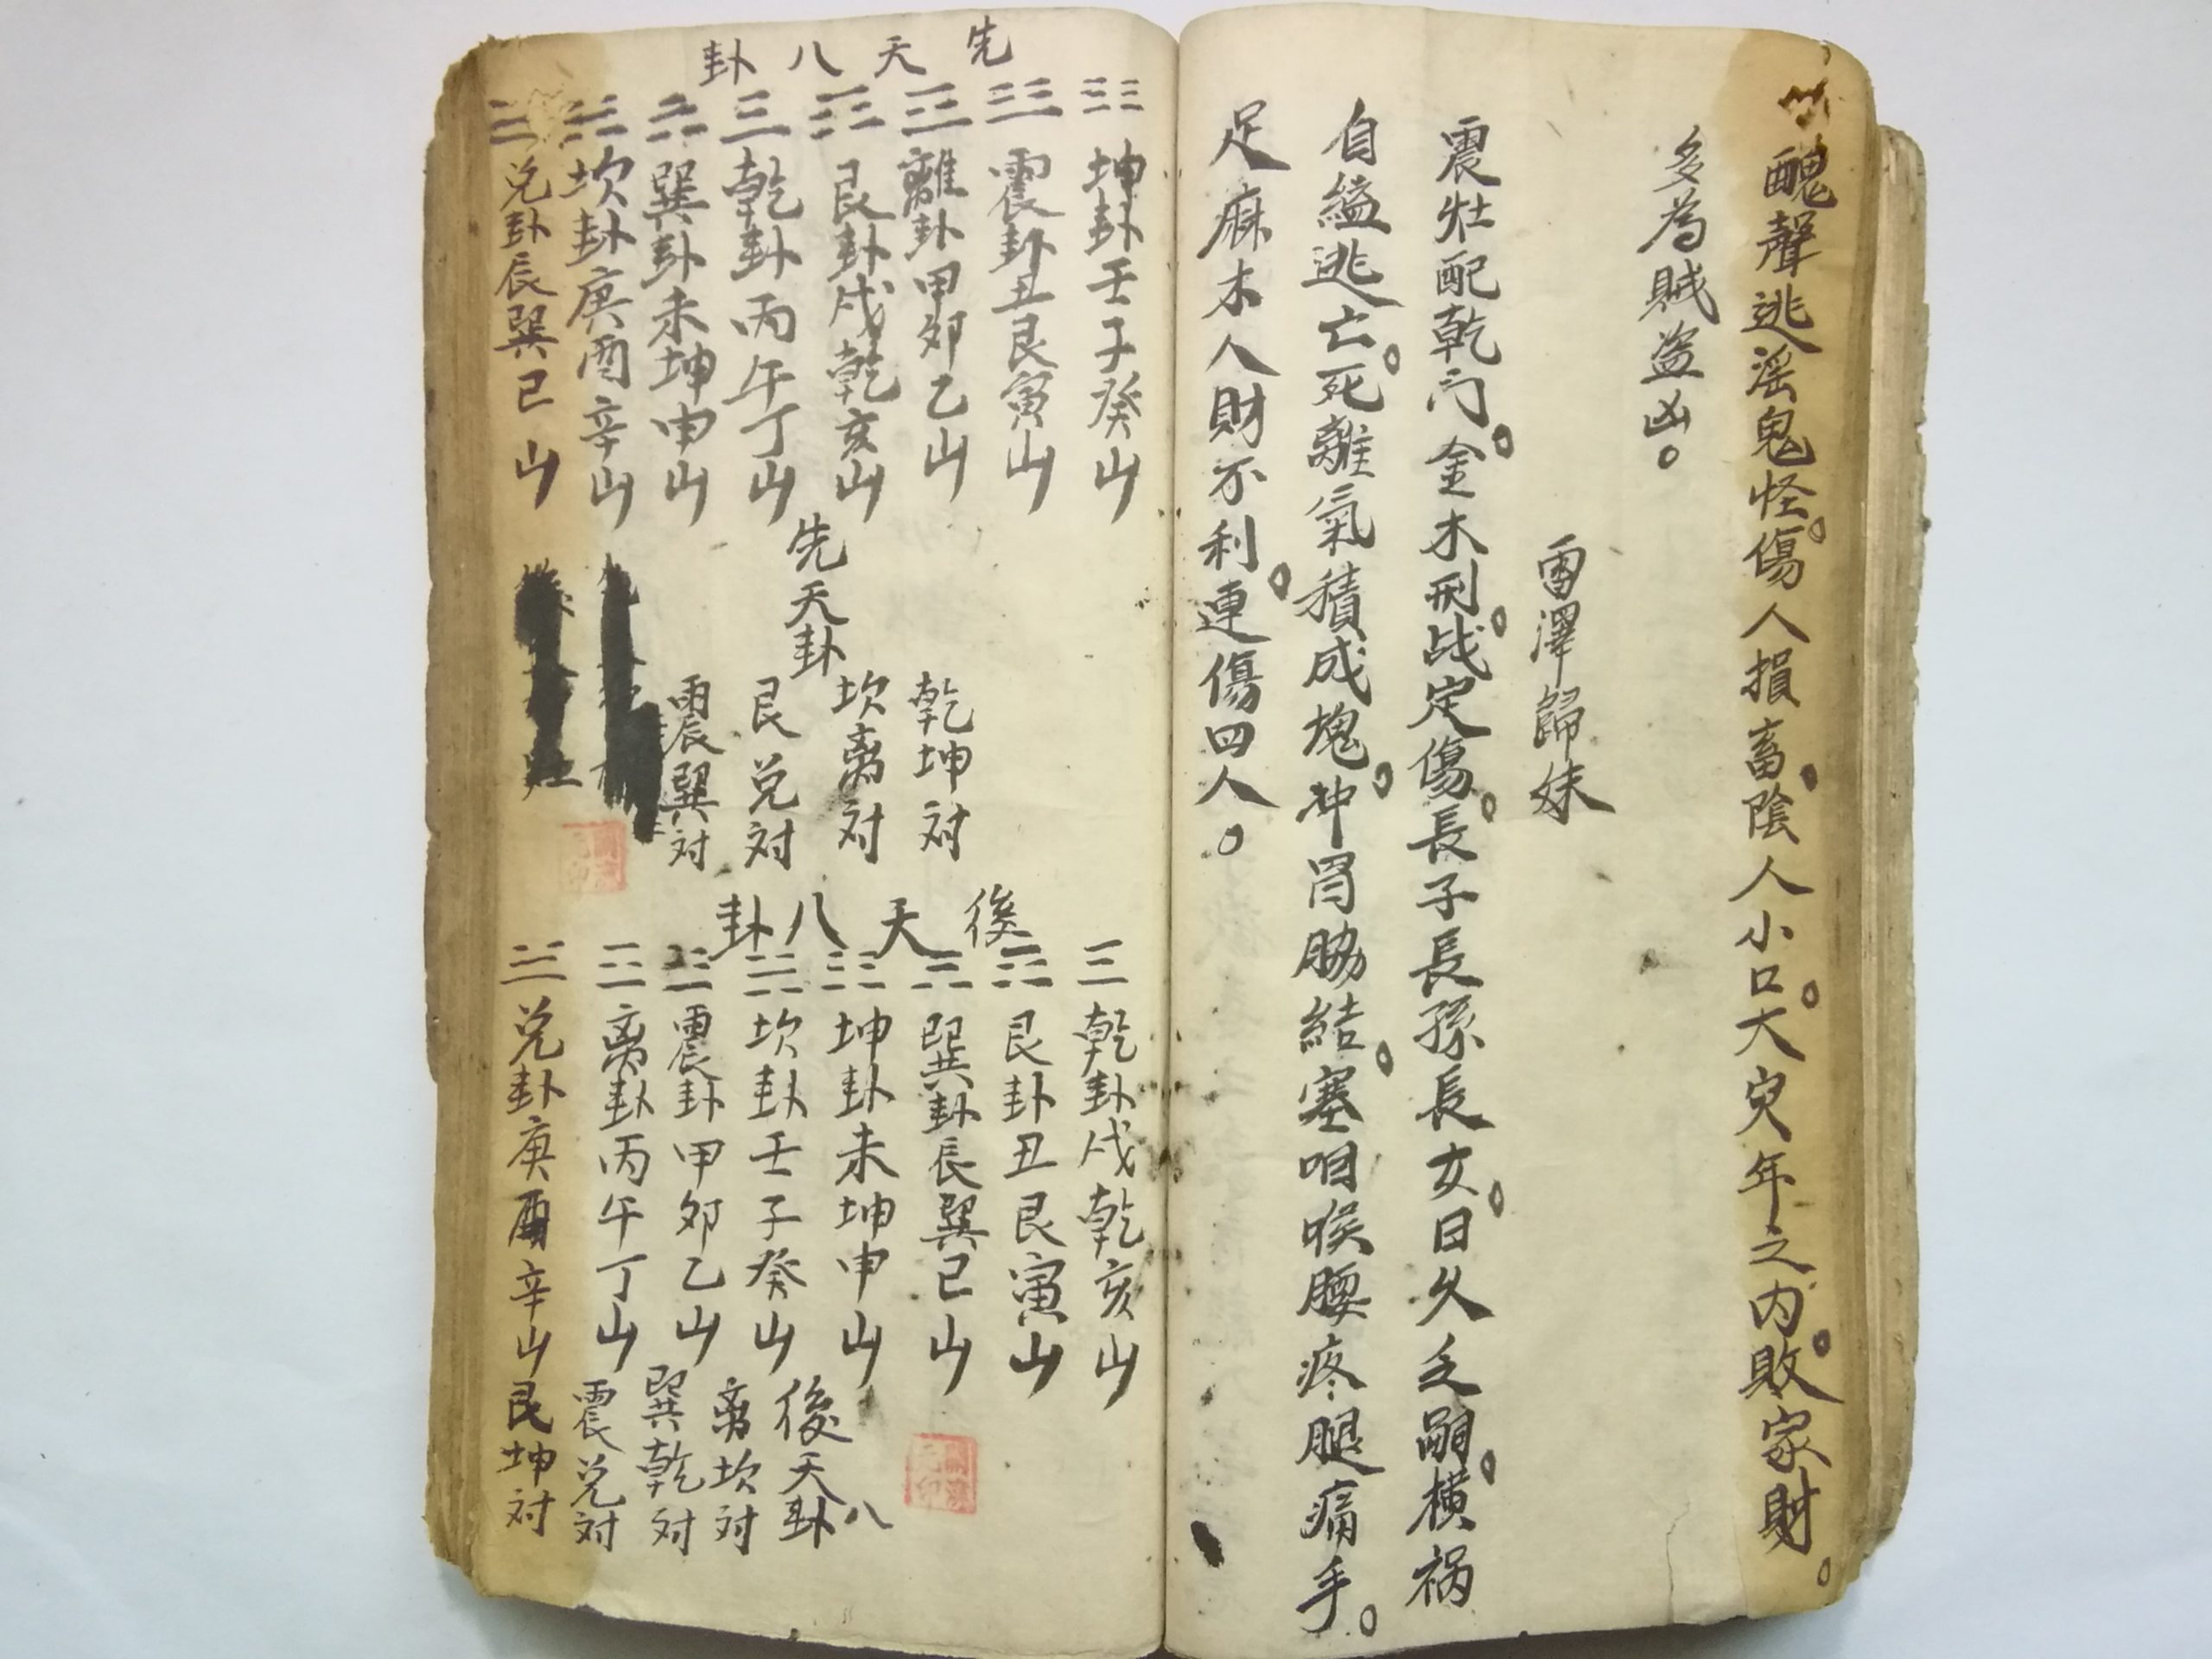 醜聲逃滛鬼怪傷人損畜陰人小口大灾年之内敗家財
多為賊盗凶
雷澤歸妹
震壮配乾门金木刑战定傷長子長孫長女日久乏嗣横祸
自縊逃亡死離氣積成塊冲胃脇結塞咽喉腰疼腿痛手
足麻木人財不利連傷四人
先天八卦
坤卦壬子癸山
震卦丑艮寅山
離卦甲卯乙山
艮卦戌乾亥山
乾卦丙午丁山
巽卦未坤申山
坎卦庚酉辛山
兑卦辰巽巳山
先天卦
乾坤対
坎离対
艮兑対
震巽対
後天八卦
乾卦戌乾亥山
艮卦丑艮寅山
巽卦辰巽巳山
坤卦未坤申山
坎卦壬子癸山
震卦甲卯乙山
离卦丙午丁山
兑卦庚酉辛山
後天八卦
离坎対
巽乾対
震兑対
艮坤対